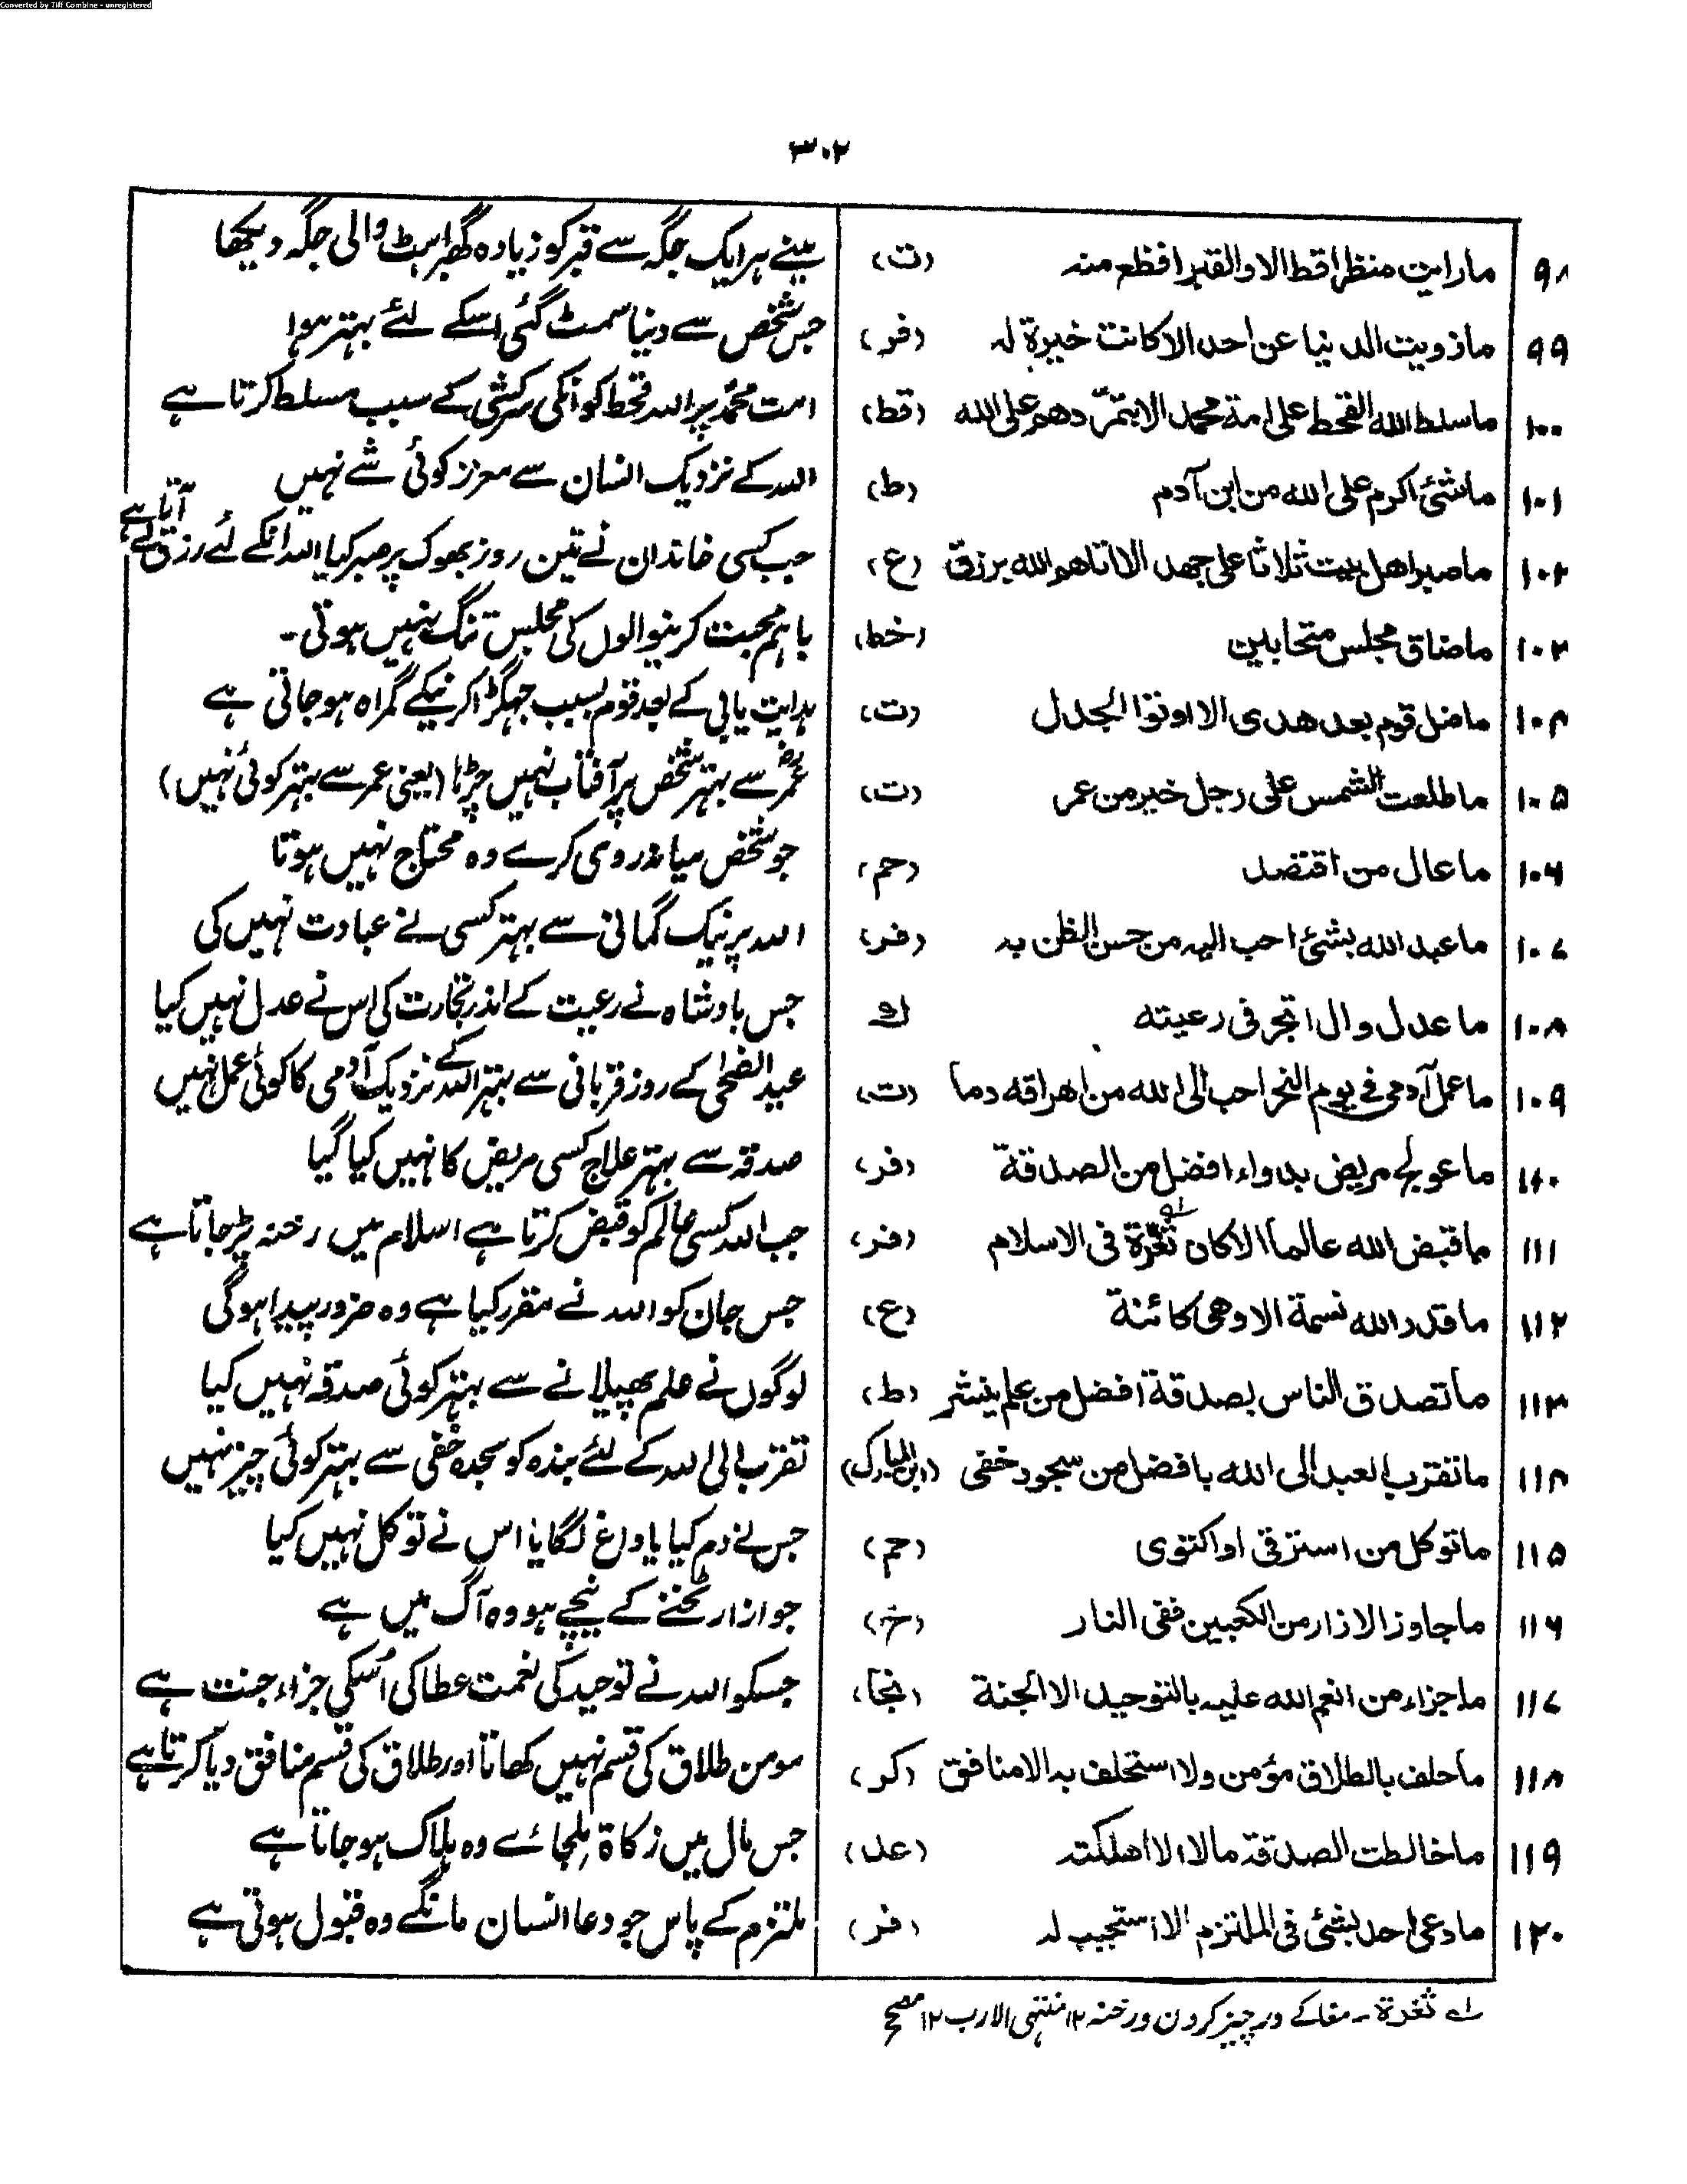 Converted by Tiff Combine - unregistered
۳۰۲
۹۸ مارایت منظرا قط الا والقبر افظع منہ (ت) مینے ہر ایک جگہ سے قبر کو زیادہ گھبراہٹ والی جگہ دیکھا
۹۹ مازویت الدنیا عن احد الا کانت خیرۃ لہ (فر) جس شخص سے دنیا سمٹ گئی اسکے لئے بہتر ہوا
۱۰۰ ماسلط اللہ القحط علی امۃ محمد الا بتمرّدھم علی اللہ (قط) امت محمدؐ پر اللہ قحط کو انکی سرکشی کے سبب مسلط کرتا ہے
۱۰۱ ماشئ اکرم علی اللہ من ابن آدم (ط) اللہ کے نزدیک انسان سے معزز کوئی شے نہیں
۱۰۲ ماصبر اھل بیت ثلاثا علی جھد الا اتاھم اللہ برزق (ع) جب کسی خاندان نے تین روز بھوک پر صبر کیا اللہ انکے لئے رزق لے آتا ہے
۱۰۳ ماضاق مجلس متحابین (خط) باہم محبت کرنیوالوں کی مجلس تنگ نہیں ہوتی۔
۱۰۴ ماضل قوم بعد ھدی الا اوتوا الجدل (ت) ہدایت یابی کے بعد قوم بسبب جہگڑا کرنیکے گمراہ ہوجاتی ہے
۱۰۵ ماطلعت الشمس علی رجل خیر من عمر (ت) عمرؓ سے بہتر شخص پر آفتاب نہیں چڑہا (یعنی عمر سے بہتر کوئی نہیں)
۱۰۶ ماعال من اقتصد (حم) جو شخص میانہ روی کرے وہ محتاج نہیں ہوتا
۱۰۷ ماعبد اللہ بشئ احب الیہ من حسن الظن بہ (فر) اللہ پر نیک گمانی سے بہتر کسی نے عبادت نہیں کی
۱۰۸ ماعدل وال اتجر فی رعیتہ جس بادشاہ نے رعیت کے اندر تجارت کی اس نے عدل نہیں کیا
۱۰۹ ماعمل آدمی فی یوم النحر احب الی اللہ من اھراقہ دما (ت) عید الضحیٰ کے روز قربانی سے بہتر اللہ کے نزدیک آدمی کا کوئی عمل نہیں
۱۱۰ ماعولج مریض بدواء افضل من الصدقۃ (فر) صدقہ سے بہتر علاج کسی مریض کا نہیں کیا گیا
۱۱۱ ماقبض اللہ عالماً الا کان ثغرۃ فی الاسلام (فر) جب اللہ کسی عالم کو قبض کرتا ہے اسلام میں رخنہ پڑجاتا ہے
۱۱۲ ماقدر اللہ نسمۃ الا وھی کائنۃ (ع) جس جان کو اللہ نے مقرر کیا ہے وہ ضرور پیدا ہوگی
۱۱۳ ماتصدق الناس بصدقۃ افضل من علم ینشر (ط) لوگوں نے علم پھیلانے سے بہتر کوئی صدقہ نہیں کیا
۱۱۴ ماتقرب العبد الی اللہ بافضل من سجود خفی (ابن المبارک) تقرب الی اللہ کے لئے بندہ کو سجدہ خفی سے بہتر کوئی چیز نہیں
۱۱۵ ماتوکل من استرقی او اکتوی (حم) جس نے دم کیا یا داغ لگایا اس نے توکل نہیں کیا
۱۱۶ ماجاوز الازار من الکعبین ففی النار (خ) جو ازار ٹخنے کے نیچے ہو وہ آگ میں ہے
۱۱۷ ماجزاء من انعم اللہ علیہ بالتوحید الا الجنۃ (نجا) جسکو اللہ نے توحید کی نعمت عطا کی اُسکی جزاء جنت ہے
۱۱۸ ماحلف بالطلاق مؤمن ولا استحلف بہ الا منافق (کر) مومن طلاق کی قسم نہیں کھاتا اور طلاق کی قسم منافق دیا کرتا ہے
۱۱۹ ماخالطت الصدقۃ مالا الا اھلکتہ (عد) جس مال میں زکاۃ ملجائے وہ ہلاک ہوجاتا ہے
۱۲۰ مادعی احد بشئی فی الملتزم الا استجیب لہ (فر) ملتزم کے پاس جو دعا انسان مانگے وہ قبول ہوتی ہے
لہ ثغرۃ ۔ مغاکے در چیز کردن و رخنہ ۱۲ منتہی الارب ۱۲ مصحح